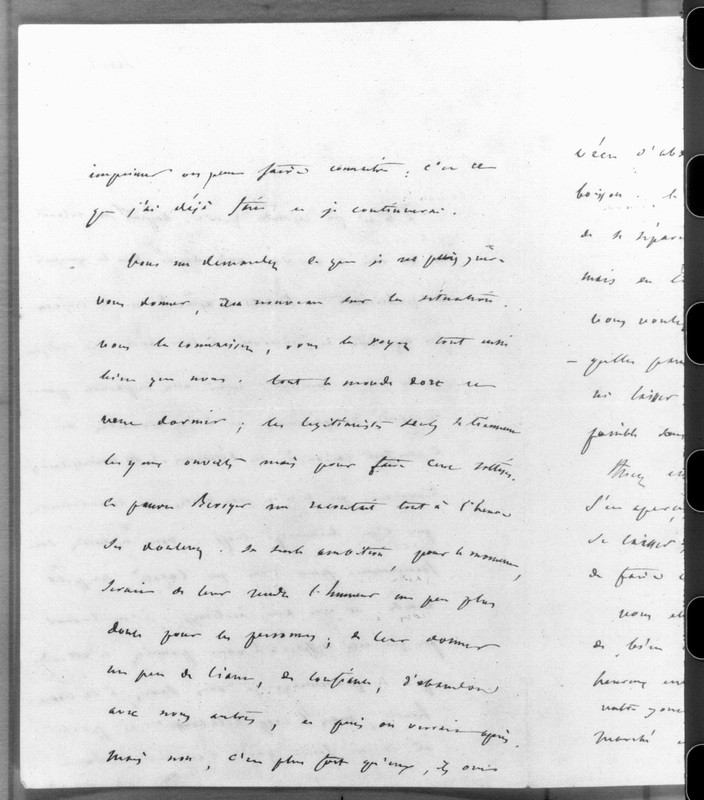 imprimer un peu faire connaitre; c'est ce
que j'ai déjà fait et je continuerai.
Vous me demandez ce que je ne puis guère
vous donner, du nouveau sur la situation.
vous la connaissez, vous la voyez tout aussi
bien que nous. tout le monde dort ou
veut dormir; les légitimistes seuls se tiennent
les yeux ouverts mais pour faire des sottises.
ce pauvre Berryer me racontait tout à l'heure
ses douleurs. Sa seule ambition, pour le moment,
serait de leur rendre l'humeur un peu plus
douce pour les personnes; de leur donner
un peu de liant, de confiance, d'abandon
avec nous autres, et puis on verrait après.
Mais non, c'est plus fort qu'eux, ils
d'abo
boisson. le
de se sépar
mais en
vous voule
quelles
ni laisser
possible dans
s'en aperç
se laisser
de faire
vous
de bien
heureux
votre
marché